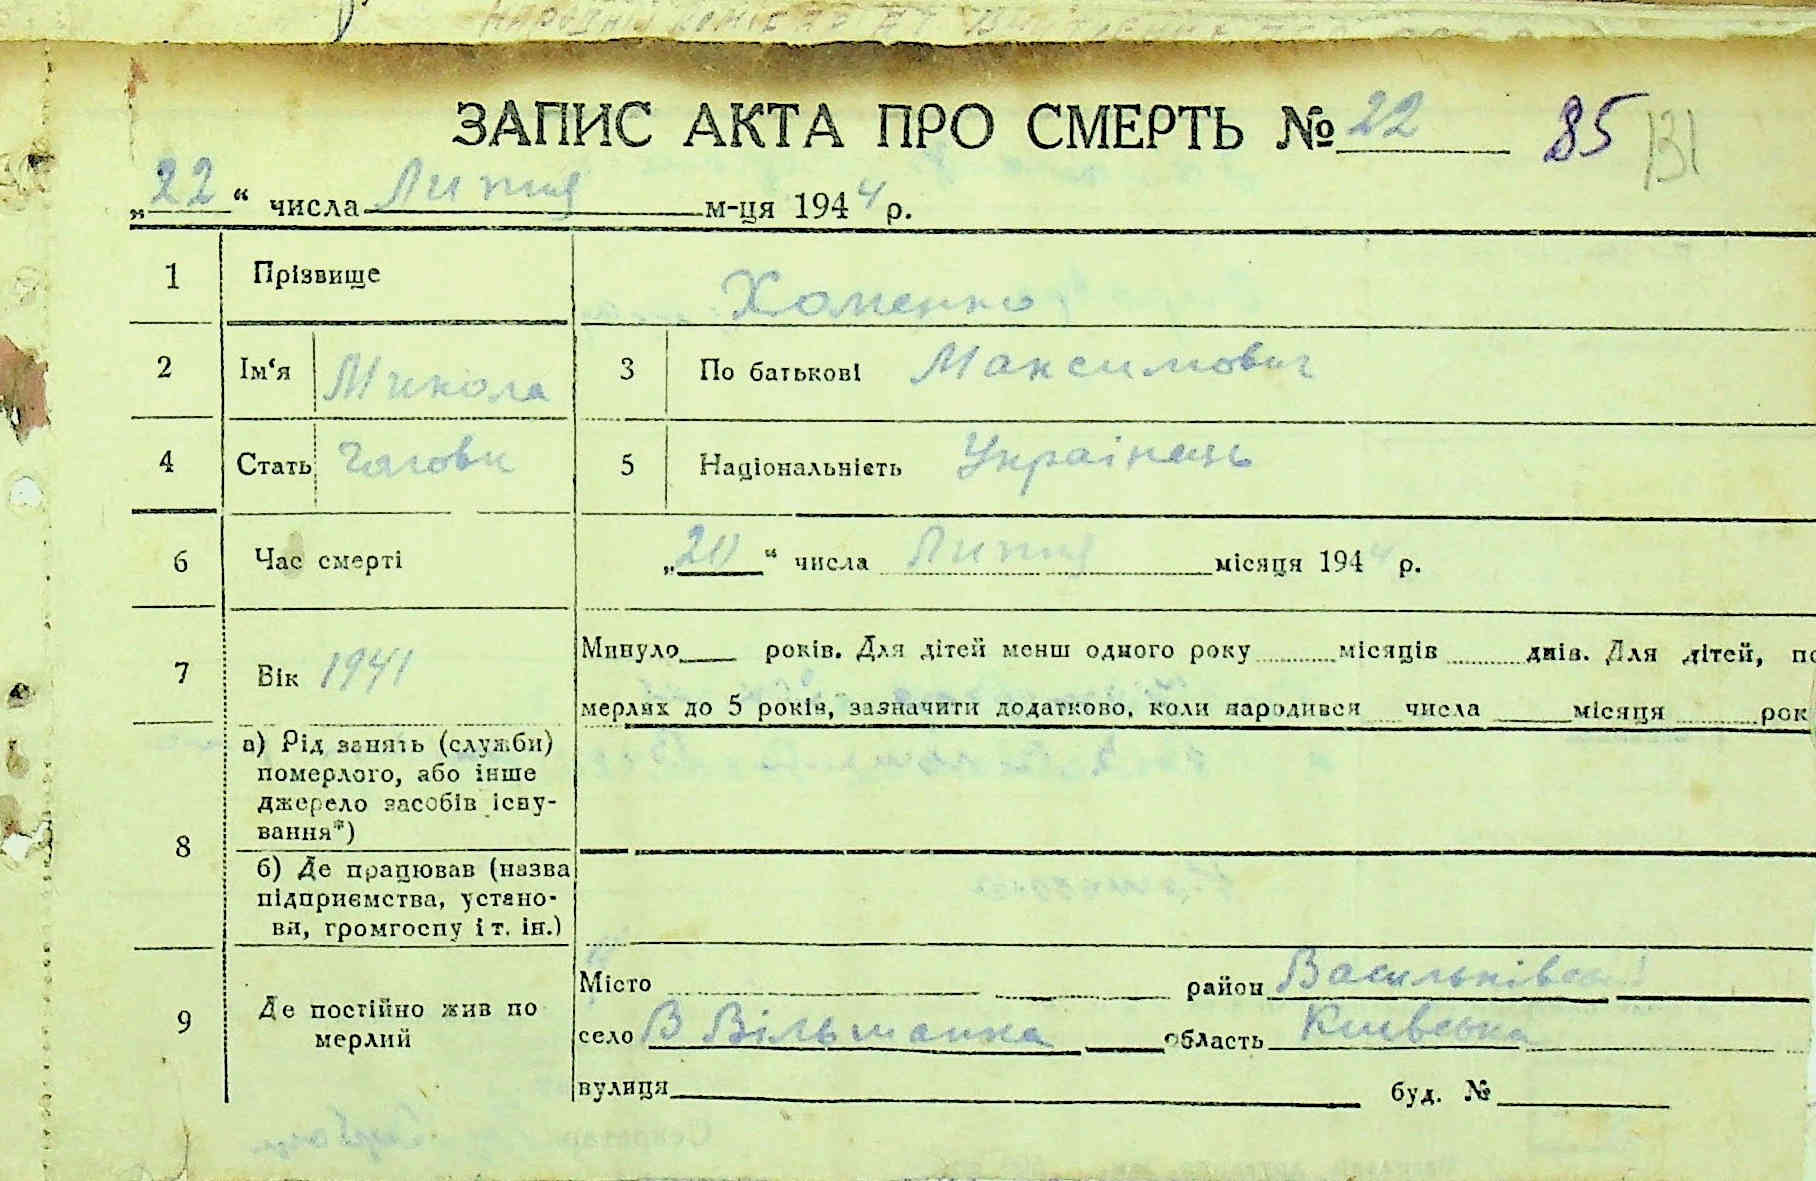 ЗАПИС АКТА ПРО СМЕРТЬ № 22 85 131
„22“ числа Липня м-ця 1944 р.
1 Прізвище Хоменко
2 Ім‘я Микола 3 По батькові Максимович
4 Стать Чолові 5 Національність Українець
6 Час смерті „20“ числа Липня місяця 1944 р.
7 Вік 1941 Минуло ____ років. Для дітей менш одного року ........ місяців ........ днів. Для дітей, по
мерлих до 5 років, зазначити додатково, коли народився ___ числа ____ місяця ........ рок
8 а) Рід занять (служби)
померлого, або інше
джерело засобів існу-
вання*)
б) Де працював (назва
підприємства, устано-
ви, громгоспу і т. ін.)
9 Де постійно жив по
мерлий
Місто район Васильківськ
село В Вільшанка область Київська
вулиця буд. №